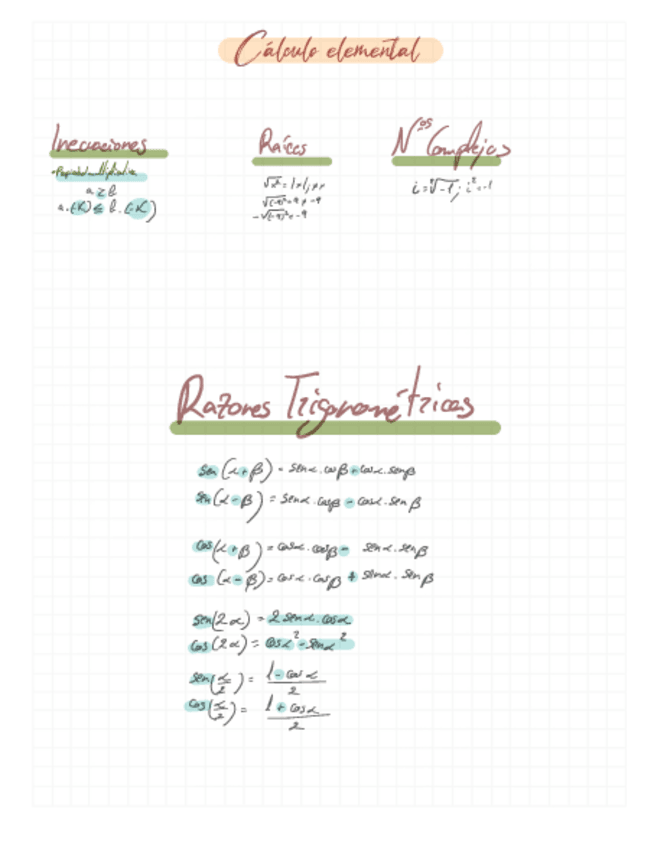 Cálculo elemental
Inecuaciones
• Propiedad multiplicativa
a ≥ b
a·(-K) ≤ b·(-K)
Raíces
√x² = |x| ; ≠ x
√(-9)² = 9 ≠ -9
-√(-9)² = -9
Nºs Complejos
i = √-1 ; i² = -1
Razones Trigonométricas
Sen (α+β) = Senα · cosβ + cosα · senβ
Sen (α-β) = Senα · cosβ - cosα · sen β
Cos (α+β) = cosα · cosβ - senα · senβ
Cos (α-β) = cosα · cosβ + senα · senβ
Sen(2α) = 2 senα · cosα
Cos (2α) = cosα² - senα²
Sen(α/2) = 1 - cosα / 2
Cos(α/2) = 1 + cosα / 2